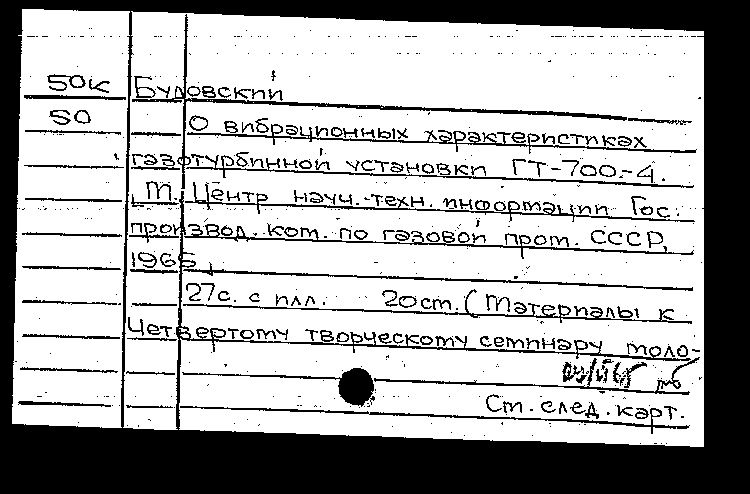 50к Будовский
50 О вибрационных характеристиках
газотурбинной установки ГТ-700-4.
М. Центр науч.-техн. информации Гос.
производ. ком. по газовой пром. СССР,
1965
27с. с илл. 20см. (Материалы к
Четвертому творческому семинару моло-
Ст. след. карт.